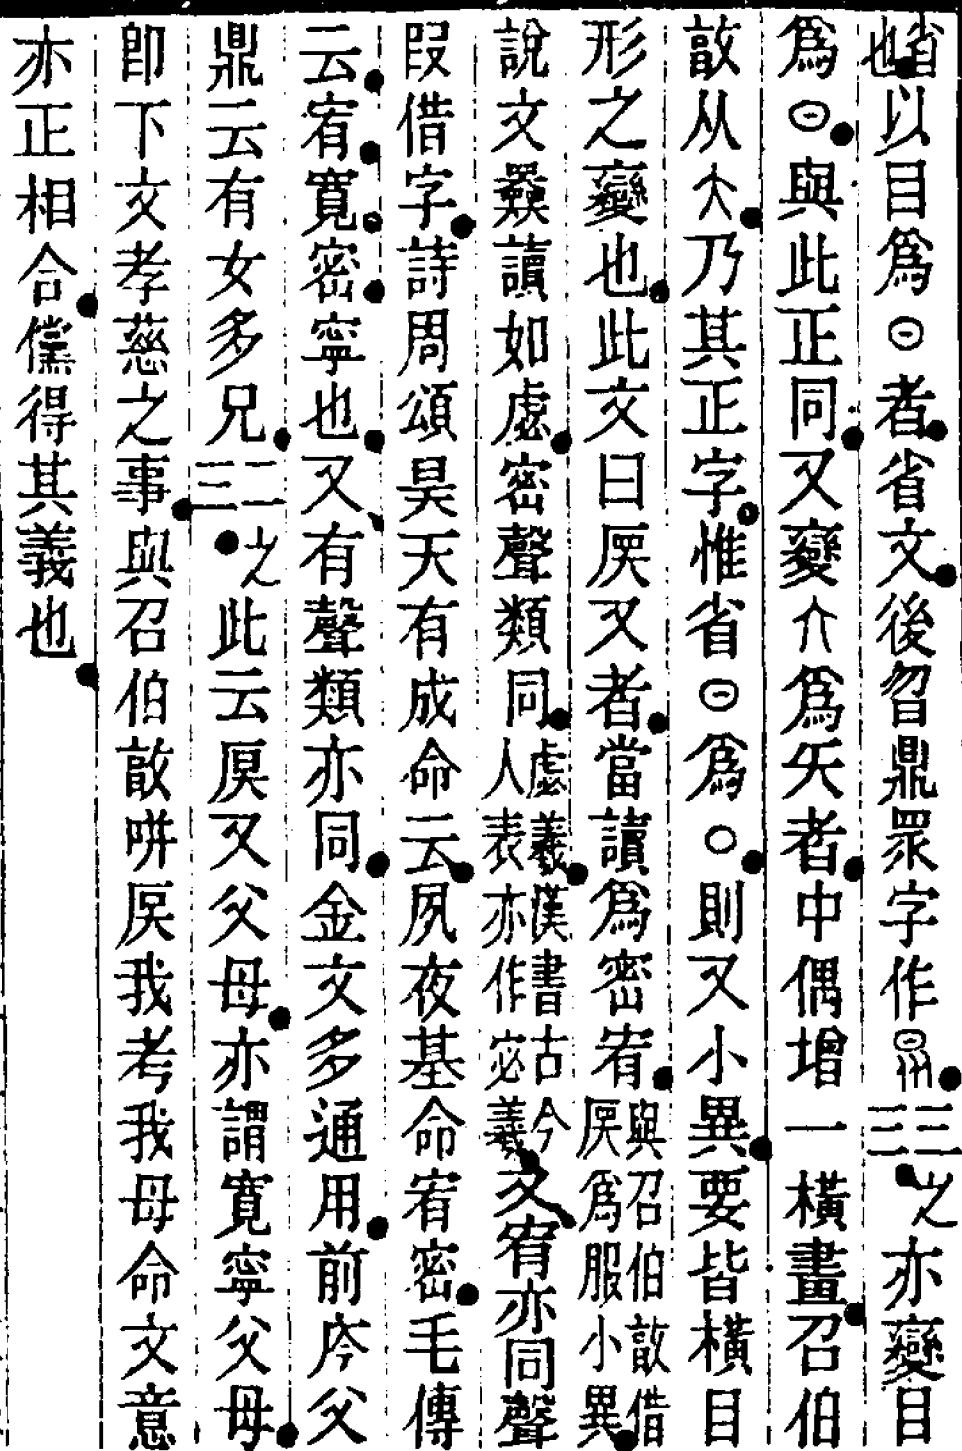 省也以目爲㊀者省文後曶鼎眾字作三三之亦變目
爲㊀與此正同又變爲矢者中偶增一橫畫召伯
敦从大乃其正字惟省㊀爲〇則又小異要皆橫目
形之變也此文曰㞋又者當讀爲密宥與召伯敦借㞋爲服小異
說文䙡讀如虙密聲類同虙羲漢書古今人表亦作宓羲又宥亦同聲
叚借字詩周頌昊天有成命云夙夜基命宥密毛傳
云宥寬密寧也又有聲類亦同金文多通用前庈父
鼎云有女多兄二三之此云㞋又父母亦謂寬寧父母
卽下文孝慈之事與召伯敦哱㞋我考我母命文意
亦正相合儻得其義也